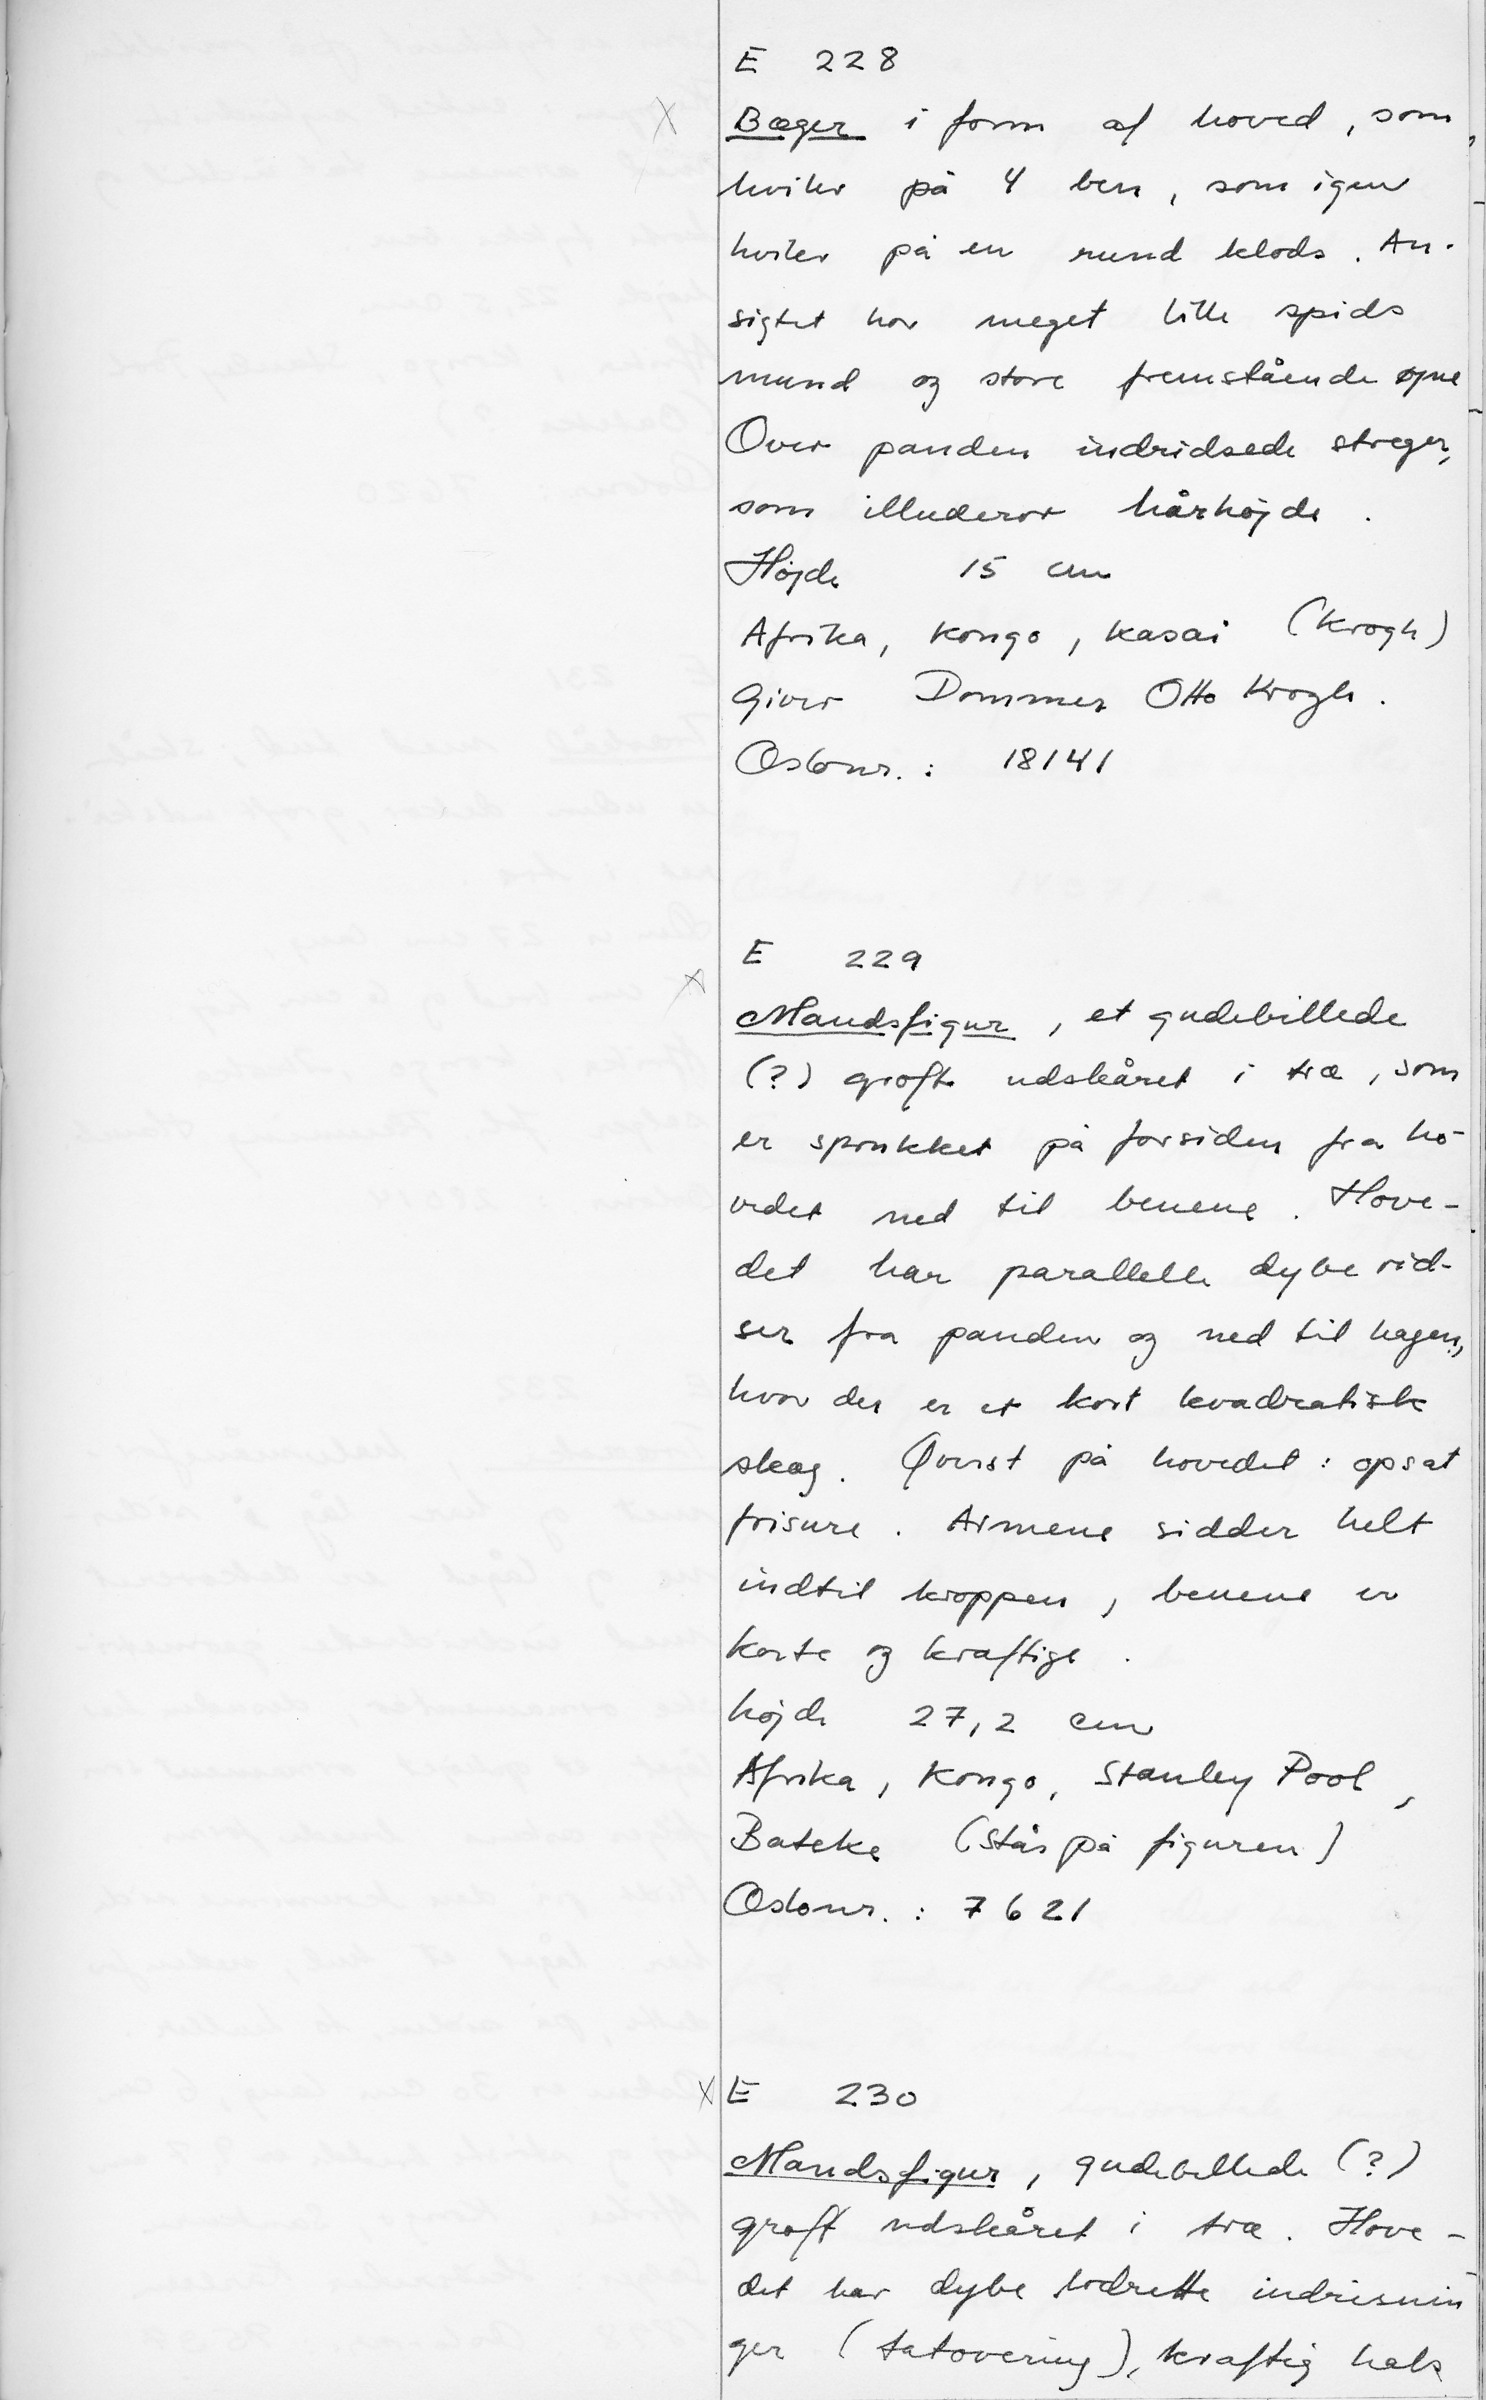 E 228
X Bæger i form af hoved, som
hviler på 4 ben, som igen
hviler på en rund klods. An-
sigtet har meget lille spids
mund og store fremstående øjne
Over panden indridsede streger,
som illuderer hårhøjde.
Højde 15 cm
Afrika, Kongo, Kasai (Krogh)
Giver Dommer Otto Krogh.
Oslonr.: 18141
E 229
X
Mandsfigur, et gudebillede
(?) groft udskåret i træ, som
er sprukket på forsiden fra ho-
vedet ned til benene. Hove-
det har parallelle dybe rid-
ser fra panden og ned til hagen,
hvor der er et kort kvadratisk
skæg. Øverst på hovedet: opsat
frisure. Armene sidder helt
indtil kroppen, benene er
korte og kraftige.
højde 27,2 cm
Afrika, Kongo, Stanley Pool,
Bateke (står på figuren)
Oslonr.: 7621
X E 230
Mandsfigur, gudebillede (?)
groft udskåret i træ. Hove-
det har dybe lodrette indrisnin-
ger (tatovering), kraftig hals